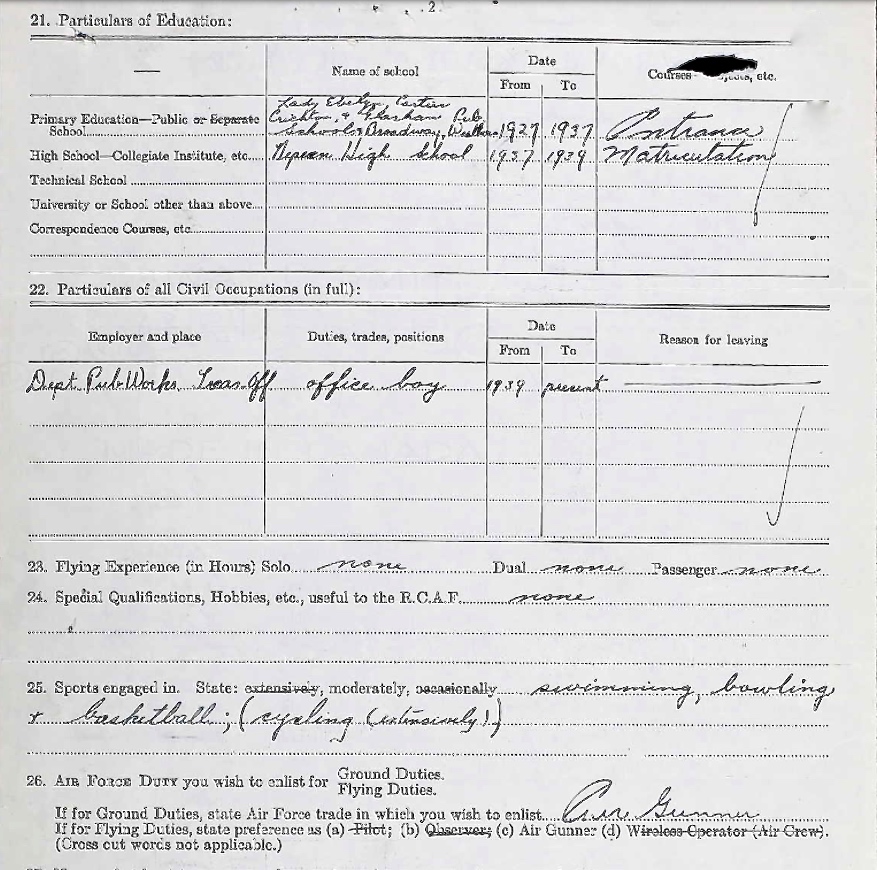 2.
21. Particulars of Education:
— Name of school Date Courses etc.
From To
Lady Evelyn, Cartier
Primary Education—Public or Separate Crichton, & Pub
School Schools & Broadway, 1927 1937 Entrance
High School—Collegiate Institute, etc. Nepean High School 1937 1939 Matriculation
Technical School
University or School other than above
Correspondence Courses, etc.
22. Particulars of all Civil Occupations (in full):
Employer and place Duties, trades, positions Date Reason for leaving
From To
Dept Pub Works Treas Off office boy 1939 present
23. Flying Experience (in Hours) Solo none Dual none Passenger none
24. Special Qualifications, Hobbies, etc., useful to the R.C.A.F. none
25. Sports engaged in. State: extensively, moderately, occasionally swimming, bowling,
& basketball; (cycling (extensively))
26. AIR FORCE DUTY you wish to enlist for Ground Duties.
Flying Duties.
If for Ground Duties, state Air Force trade in which you wish to enlist Air Gunner
If for Flying Duties, state preference as (a) Pilot; (b) Observer; (c) Air Gunner (d) Wireless Operator (Air Crew).
(Cross cut words not applicable.)